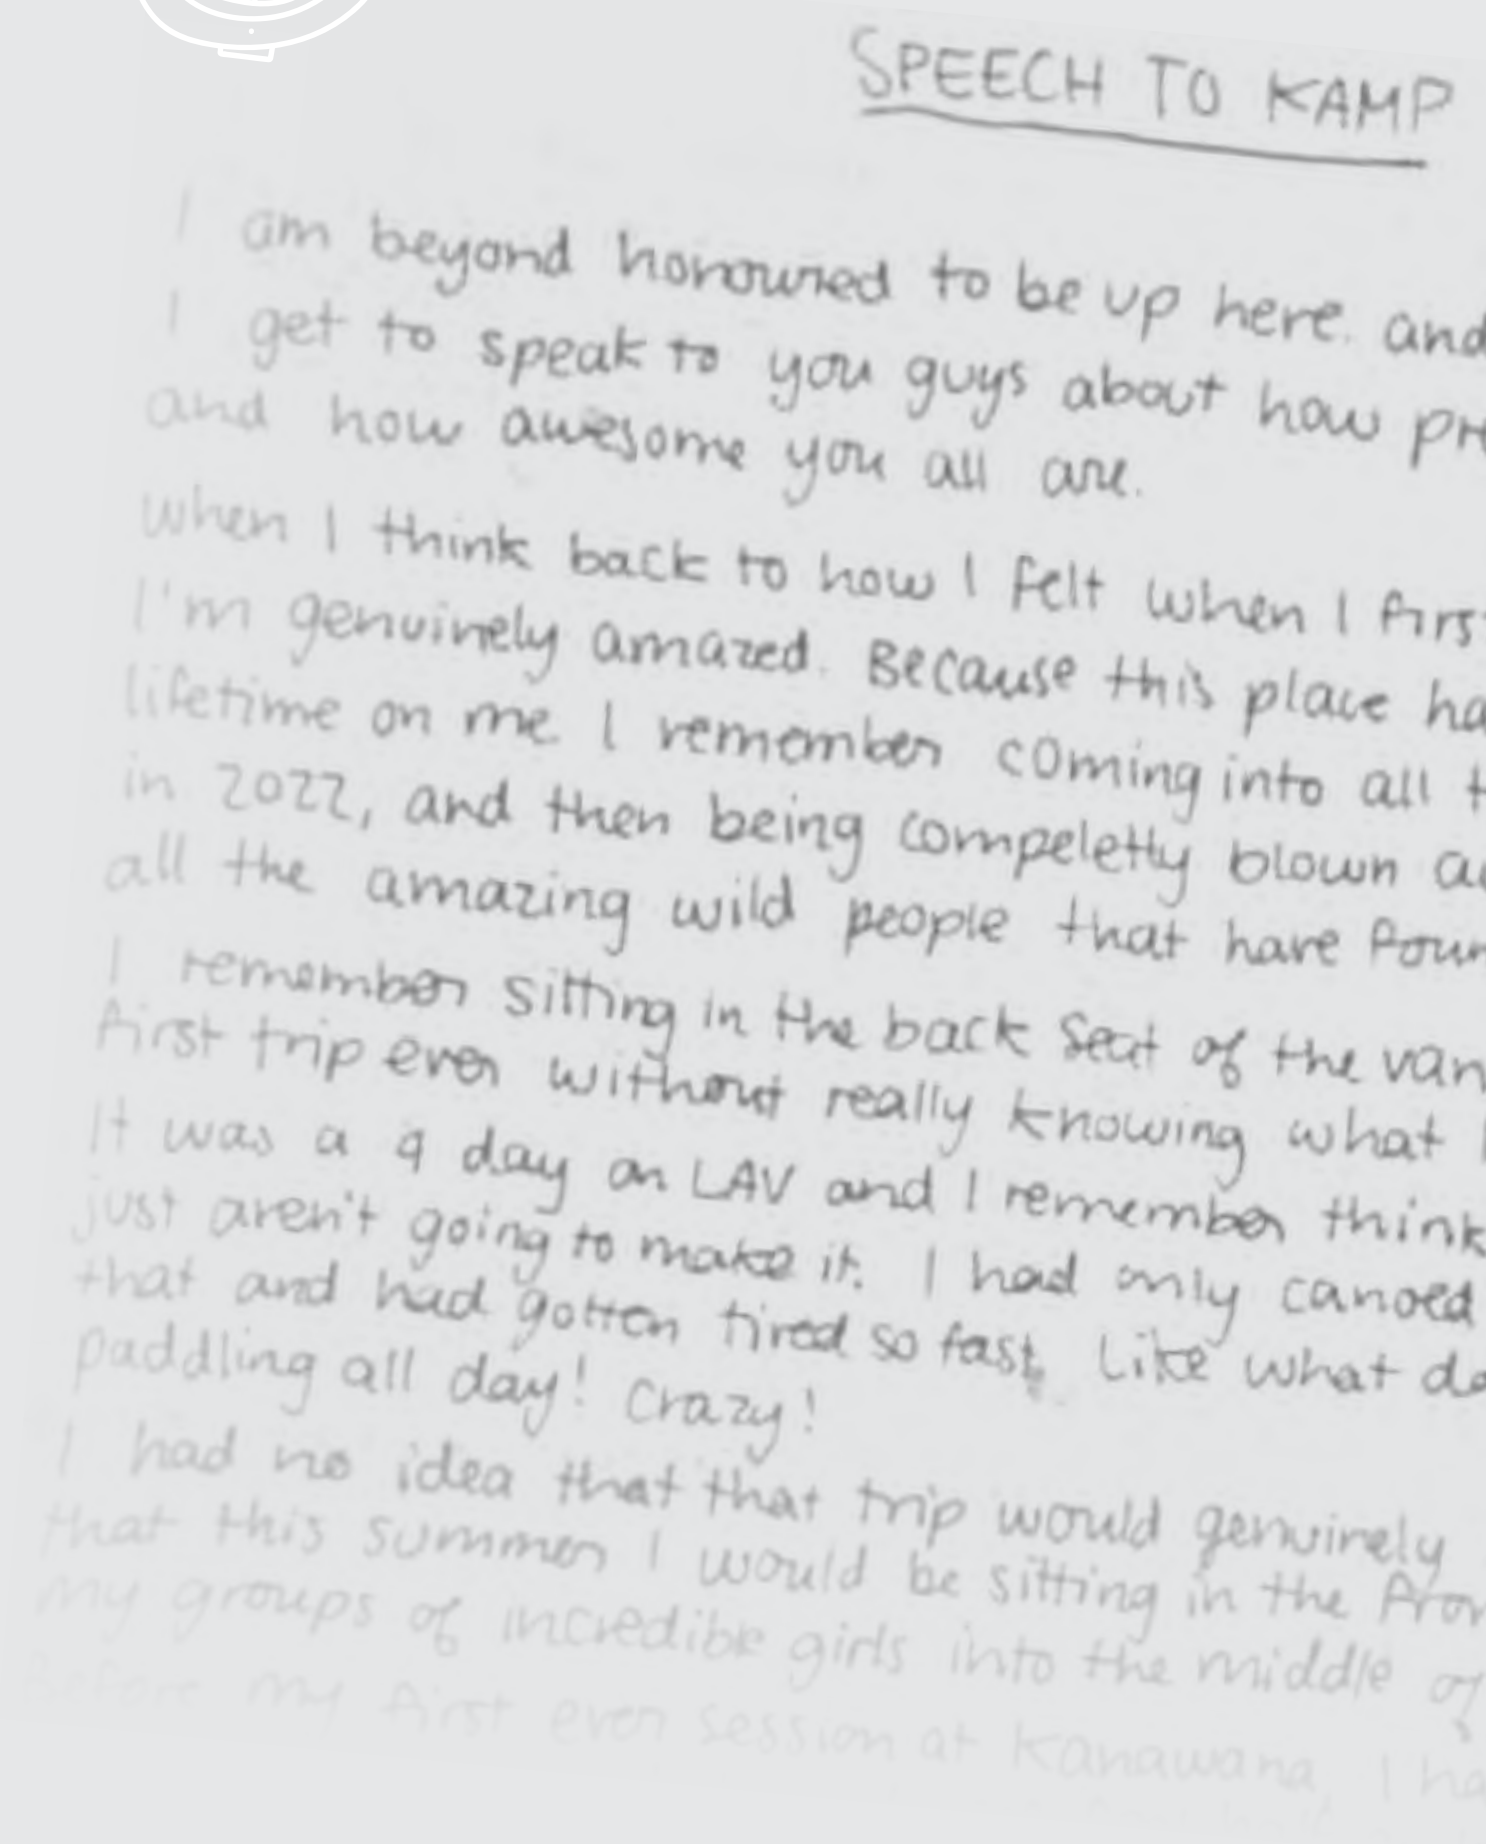 SPEECH TO KAMP
I am beyond honoured to be up here. and
I get to speak to you guys about how pre
and how awesome you all are.
when I think back to how I felt when I firs
I'm genuinely amazed. Because this place ha
lifetime on me I remember coming into all t
in 2022, and then being compeletly blown a
all the amazing wild people that have foun
I remember sitting in the back seat of the van
first trip ever without really knowing what I
It was a 9 day on LAV and I remember think
just aren't going to make it. I had only canoed
that and had gotten tired so fast, Like what do
paddling all day! Crazy!
I had no idea that that trip would genuinely
that this summer I would be sitting in the fron
my groups of incredible girls into the middle of
Before my first ever session at Kanawana, I ha